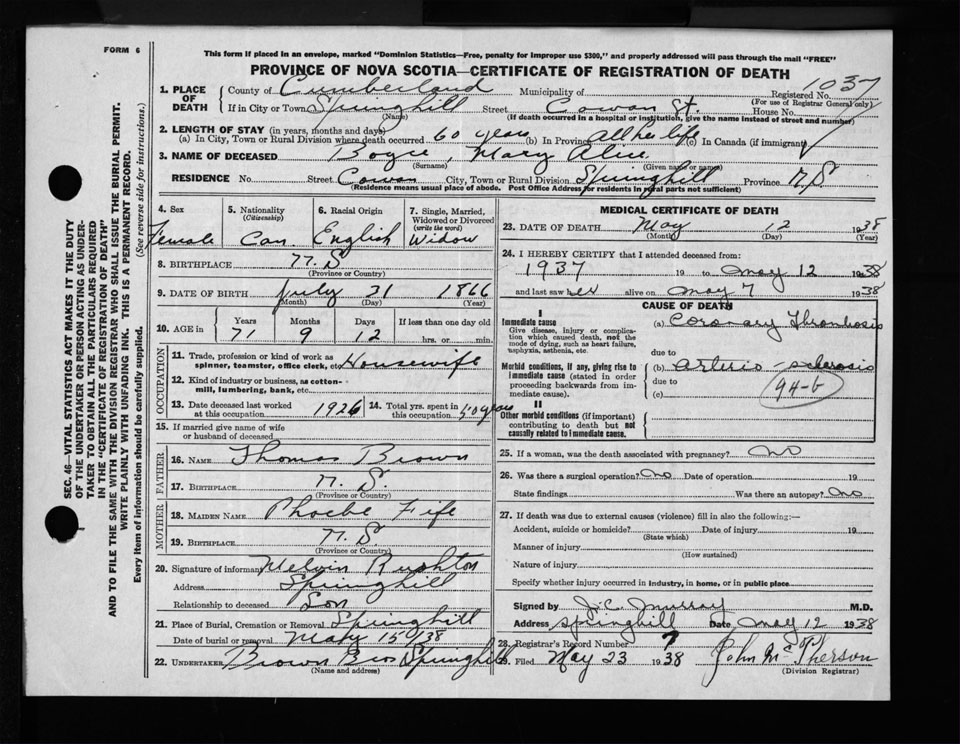 FORM 6
This form if placed in an envelope, marked "Dominion Statistics—Free, penalty for improper use $300," and properly addressed will pass through the mail "FREE"
PROVINCE OF NOVA SCOTIA—CERTIFICATE OF REGISTRATION OF DEATH
SEC. 46—VITAL STATISTICS ACT MAKES IT THE DUTY
OF THE UNDERTAKER OR PERSON ACTING AS UNDER-
TAKER TO OBTAIN ALL THE PARTICULARS REQUIRED
IN THE "CERTIFICATE OF REGISTRATION OF DEATH"
AND TO FILE THE SAME WITH THE DIVISION REGISTRAR WHO SHALL ISSUE THE BURIAL PERMIT.
WRITE PLAINLY WITH UNFADING INK. THIS IS A PERMANENT RECORD.
Every item of information should be carefully supplied. (See reverse side for instructions.)
1. PLACE OF DEATH County of Cumberland Municipality of Registered No. 1037
(For use of Registrar General only)
If in City or Town Springhill Street Cowan St. House No.
(Name) (If death occurred in a hospital or institution, give the name instead of street and number)
2. LENGTH OF STAY (in years, months and days)
(a) In City, Town or Rural Division where death occurred 60 years (b) In Province All her life (c) In Canada (if immigrant)
3. NAME OF DECEASED Boyce, Mary Alice
(Surname) (Given name or names)
RESIDENCE No. Street Cowan City, Town or Rural Division Springhill Province N.S
(Residence means usual place of abode. Post Office Address for residents in rural parts not sufficient)
4. Sex Female
5. Nationality (Citizenship) Can.
6. Racial Origin English
7. Single, Married, Widowed or Divorced (write the word) Widow
8. BIRTHPLACE N. S
(Province or Country)
9. DATE OF BIRTH July 31 1866
(Month) (Day) (Year)
10. AGE in Years 71 Months 9 Days 12 If less than one day old hrs. or min.
OCCUPATION
11. Trade, profession or kind of work as spinner, teamster, office clerk, etc. Housewife
12. Kind of industry or business, as cotton-mill, lumbering, bank, etc.
13. Date deceased last worked at this occupation 1926
14. Total yrs. spent in this occupation 50 years
15. If married give name of wife or husband of deceased
FATHER
16. NAME Thomas Brown
17. BIRTHPLACE N. S.
(Province or Country)
MOTHER
18. MAIDEN NAME Phoebe Fife
19. BIRTHPLACE N. S.
(Province or Country)
20. Signature of informant Melvin Rushton
Address Springhill
Relationship to deceased Son
21. Place of Burial, Cremation or Removal Springhill
Date of burial or removal May 15/38
22. UNDERTAKER Brown Bros Springhill
(Name and address)
MEDICAL CERTIFICATE OF DEATH
23. DATE OF DEATH May 12 1938
(Month) (Day) (Year)
24. I HEREBY CERTIFY that I attended deceased from:
1937 19 to May 12 1938
and last saw her alive on May 7 1938
CAUSE OF DEATH
I
Immediate cause
Give disease, injury or complication which caused death, not the mode of dying, such as heart failure, asphyxia, asthenia, etc.
(a) Coronary Thrombosis
due to
Morbid conditions, if any, giving rise to immediate cause (stated in order proceeding backwards from immediate cause).
(b) Arterio sclerosis
due to
(c) 94-b
II
Other morbid conditions (if important) contributing to death but not causally related to immediate cause.
25. If a woman, was the death associated with pregnancy? No
26. Was there a surgical operation? No Date of operation 19
State findings Was there an autopsy? No
27. If death was due to external causes (violence) fill in also the following:—
Accident, suicide or homicide? Date of injury 19
(State which)
Manner of injury
(How sustained)
Nature of injury
Specify whether injury occurred in industry, in home, or in public place
Signed by J.C. Murray M.D.
Address Springhill Date May 12 1938
28. Registrar's Record Number 7
29. Filed May 23 1938 John McPherson
(Division Registrar)